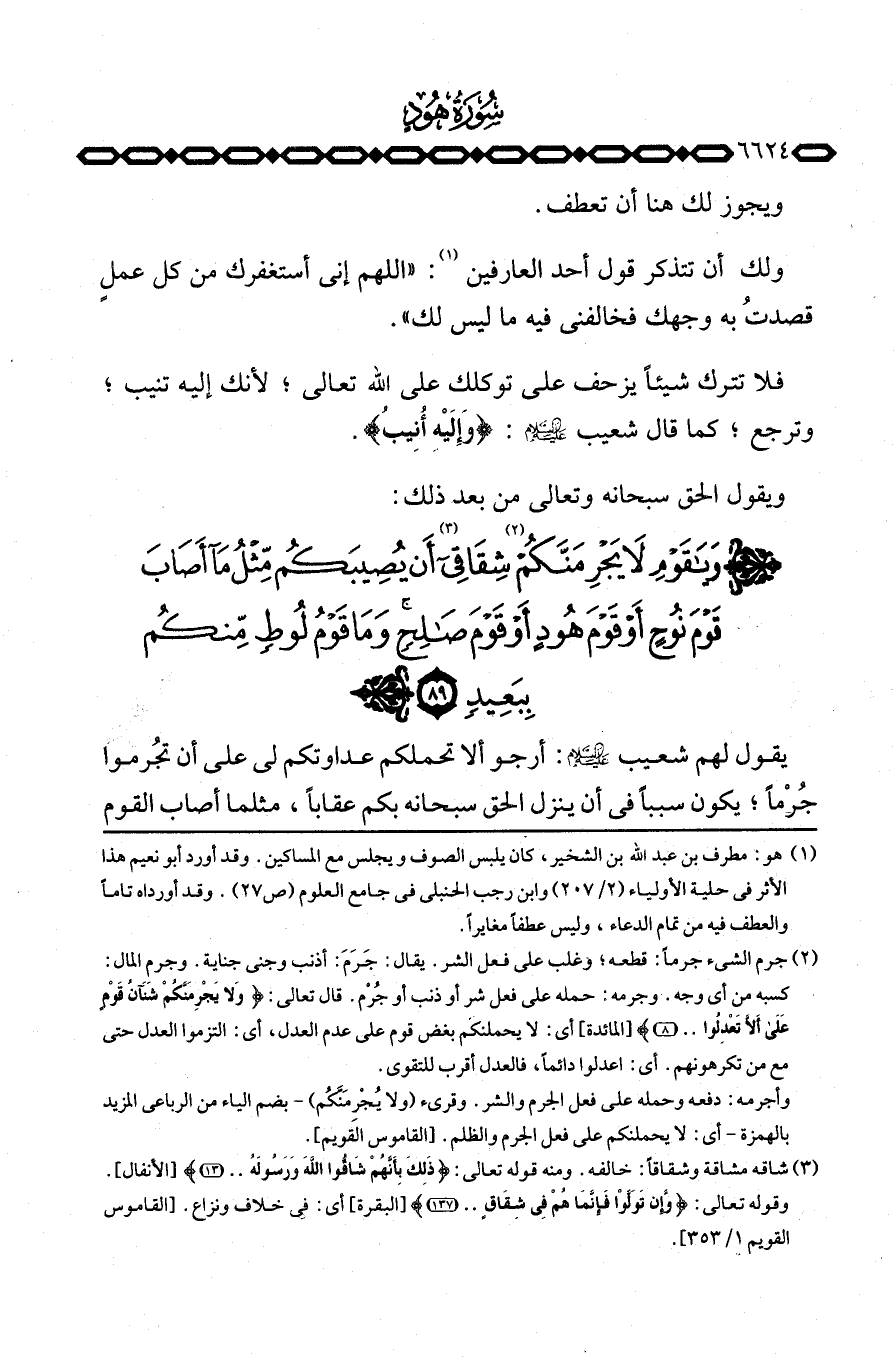 سُورَةُ هُودٍ
٦٦٢٤
ويجوز لك هنا أن تعطف .
ولك أن تتذكر قول أحد العارفين (١) : «اللهم إنى أستغفرك من كل عملٍ
قصدتُ به وجهك فخالفنى فيه ما ليس لك» .
فلا تترك شيئاً يزحف على توكلك على الله تعالى ؛ لأنك إليه تنيب ؛
وترجع ؛ كما قال شعيب عليه السلام : ﴿وَإِلَيْهِ أُنِيبُ﴾ .
ويقول الحق سبحانه وتعالى من بعد ذلك :
﴿ وَيَٰقَوْمِ لَا يَجْرِمَنَّكُمْ (٢) شِقَاقِىٓ (٣) أَن يُصِيبَكُم مِّثْلُ مَآ أَصَابَ
قَوْمَ نُوحٍ أَوْ قَوْمَ هُودٍ أَوْ قَوْمَ صَٰلِحٍ ۚ وَمَا قَوْمُ لُوطٍ مِّنكُم
بِبَعِيدٍ ٨٩ ﴾
يقول لهم شعيب عليه السلام : أرجو ألا تحملكم عداوتكم لى على أن تجُرموا
جُرْماً ؛ يكون سبباً فى أن ينزل الحق سبحانه بكم عقاباً ، مثلما أصاب القوم
(١) هو : مطرف بن عبد الله بن الشخير ، كان يلبس الصوف ويجلس مع المساكين . وقد أورد أبو نعيم هذا
الأثر فى حلية الأولياء (٢/ ٢٠٧) وابن رجب الحنبلى فى جامع العلوم (ص٢٧) . وقد أورداه تاماً
والعطف فيه من تمام الدعاء ، وليس عطفاً مغايراً .
(٢) جرم الشىء جرماً : قطعه ؛ وغلب على فعل الشر . يقال : جَرَمَ : أذنب وجنى جناية . وجرم المال :
كسبه من أى وجه . وجرمه : حمله على فعل شر أو ذنب أو جُرْم . قال تعالى : ﴿ وَلا يَجْرِمَنَّكُمْ شَنَآنُ قَوْمٍ
عَلَىٰ أَلاَّ تَعْدِلُوا .. (٨) ﴾ [المائدة] أى : لا يحملنكم بغض قوم على عدم العدل ، أى : التزموا العدل حتى
مع من تكرهونهم . أى : اعدلوا دائماً ، فالعدل أقرب للتقوى .
وأجرمه : دفعه وحمله على فعل الجرم والشر . وقرىء (ولا يُجْرِمَنَّكُم) - بضم الياء من الرباعى المزيد
بالهمزة - أى : لا يحملنكم على فعل الجرم والظلم . [القاموس القويم] .
(٣) شاقه مشاقة وشقاقاً : خالفه . ومنه قوله تعالى : ﴿ ذَلِكَ بِأَنَّهُمْ شَاقُّوا اللَّهَ وَرَسُولَهُ .. (١٣) ﴾ [الأنفال] .
وقوله تعالى : ﴿ وَّإِن تَوَلَّوْا فَإِنَّمَا هُمْ فِي شِقَاقٍ .. (١٣٧) ﴾ [البقرة] أى : فى خلاف ونزاع . [القاموس
القويم ١/ ٣٥٣] .